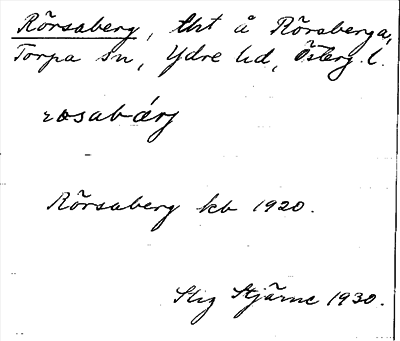 Rörsaberg, tht å Rörsberga,
Torpa sn, Ydre hd, Österg. l.
rosabärj
Rörsaberg kb 1920.
Stig Stjärne 1930.